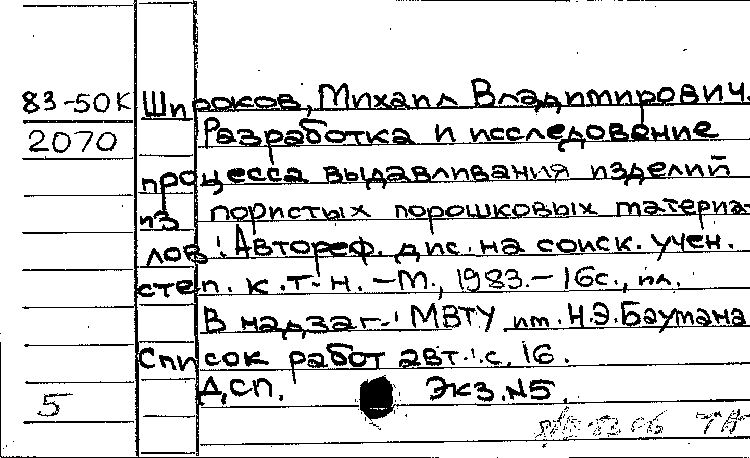 83-50К Широков, Михаил Владимирович.
2070 Разработка и исследование
процесса выдавливания изделий
из пористых порошковых материа-
лов: Автореф. дис. на соиск. учен.
степ. к.т.н. -М., 1983.- 16с., ил.
В надзаг.: МВТУ им. Н.Э.Баумана
Список работ авт.: с. 16.
Д,СП. Экз.№5.
5